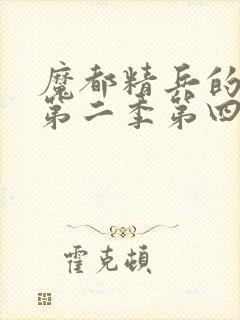 魔都精兵的
第二季第四
霍克顿